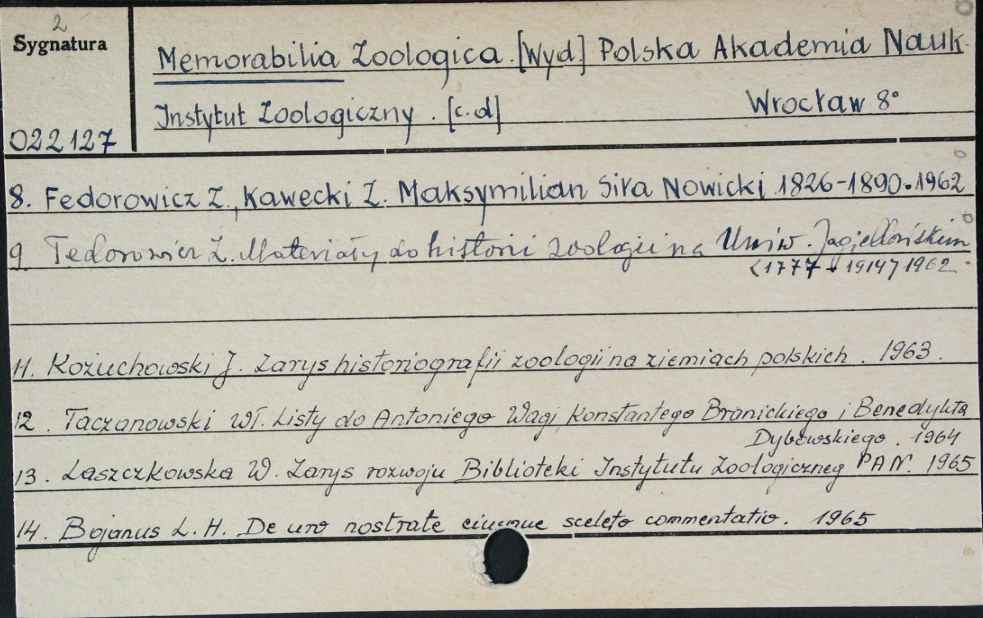 2
Sygnatura
Memorabilia Zoologica. [Wyd] Polska Akademia Nauk.
Instytut Zoologiczny. [c.d] Wrocław 8°
022127
8. Fedorowicz Z., Kawecki Z. Maksymilian Siła Nowicki 1826-1890. 1962
9. Fedorowicz Z. Materiały do historii zoologii na Uniw. Jagiellońskim
(1777-1914) 1962.
11. Kożuchowski J. Zarys historiografii zoologii na ziemiach polskich. 1963.
12. Taczanowski Wł. Listy do Antoniego Wagi, Konstantego Branickiego i Benedykta
Dybowskiego. 1964
13. Laszczkowska W. Zarys rozwoju Biblioteki Instytutu Zoologiczneg PAN. 1965
14. Bojanus L. H. De uro nostrate eiusque sceleto commentatio. 1965